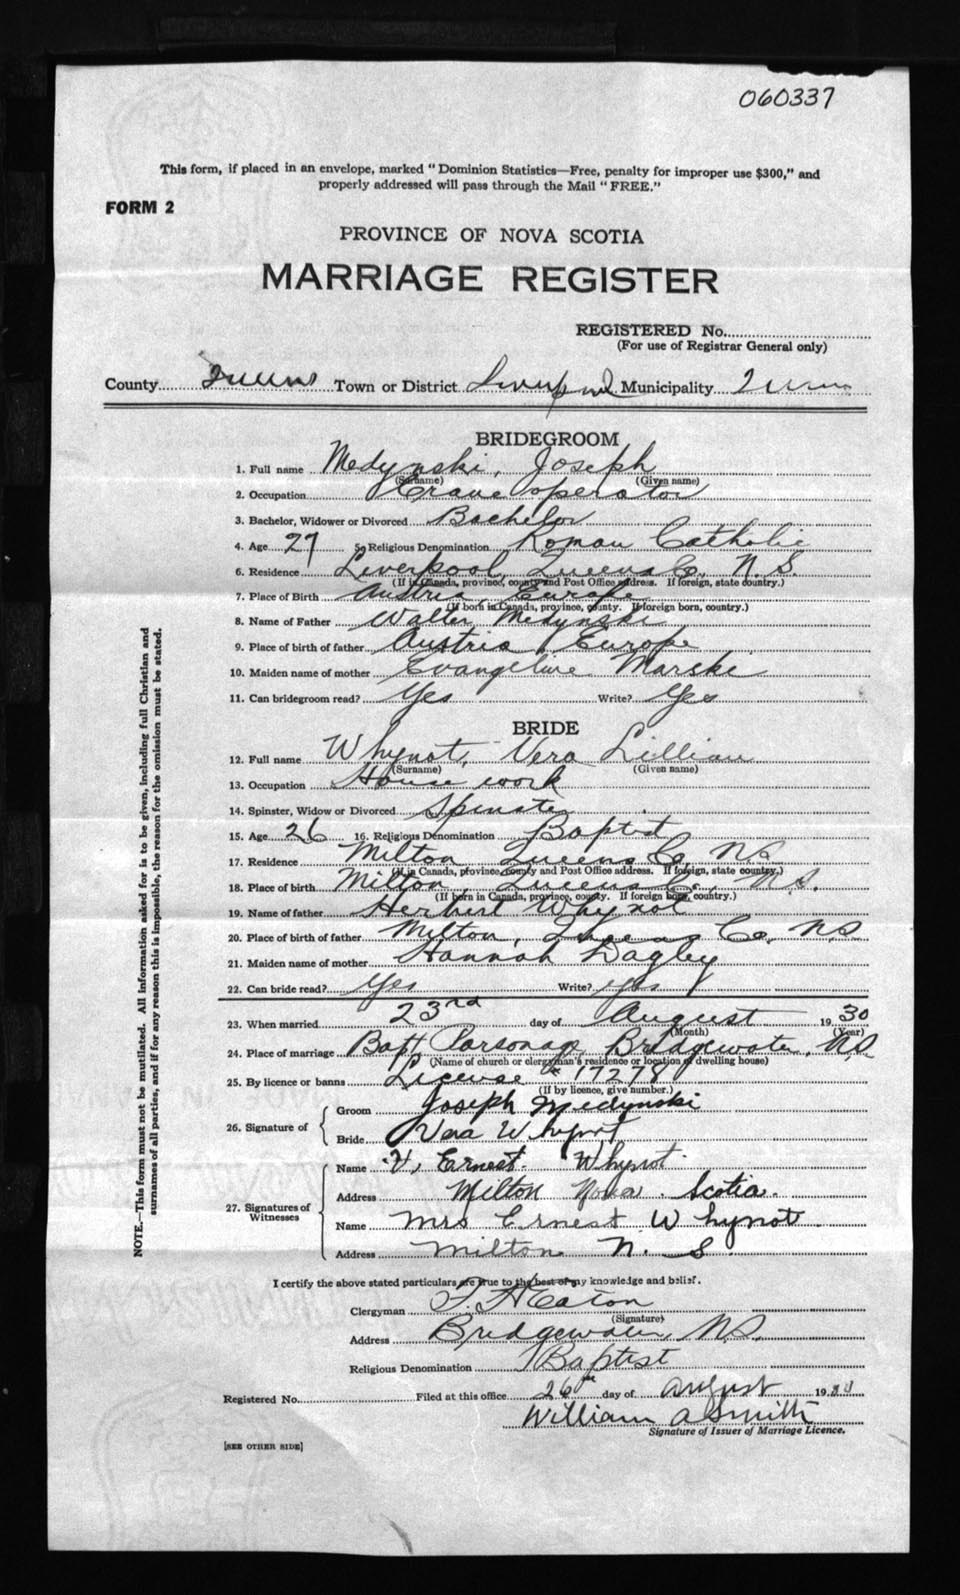 060337
This form, if placed in an envelope, marked "Dominion Statistics—Free, penalty for improper use $300," and
properly addressed will pass through the Mail "FREE."
FORM 2
PROVINCE OF NOVA SCOTIA
MARRIAGE REGISTER
REGISTERED No.
(For use of Registrar General only)
County Queens Town or District Liverpool Municipality Queens
BRIDEGROOM
1. Full name Medynski, Joseph
(Surname) (Given name)
2. Occupation Crane operator
3. Bachelor, Widower or Divorced Bachelor
4. Age 27 5. Religious Denomination Roman Catholic
6. Residence Liverpool, Queens Co, N.S.
(If in Canada, province, county and Post Office address. If foreign, state country.)
7. Place of Birth Austria, Europe
(If born in Canada, province, county. If foreign born, country.)
8. Name of Father Walter Medynski
9. Place of birth of father Austria, Europe
10. Maiden name of mother Evangeline Marske
11. Can bridegroom read? Yes Write? Yes
BRIDE
12. Full name Whynot, Vera Lillian
(Surname) (Given name)
13. Occupation House work
14. Spinster, Widow or Divorced Spinster
15. Age 26 16. Religious Denomination Baptist
17. Residence Milton, Queens Co, N.S.
(If in Canada, province, county and Post Office address. If foreign, state country.)
18. Place of birth Milton, Queens Co., N.S.
(If born in Canada, province, county. If foreign born, country.)
19. Name of father Herbert Whynot
20. Place of birth of father Milton, Queens Co, N.S.
21. Maiden name of mother Hannah Dagley
22. Can bride read? Yes Write? yes
23. When married 23rd day of August 1930
(Month) (Year)
24. Place of marriage Bapt Parsonage, Bridgewater, N.S.
(Name of church or clergyman's residence or location of dwelling house)
25. By licence or banns License # 17278
(If by licence, give number.)
26. Signature of Groom Joseph Medynski
Bride Vera Whynot
27. Signatures of Witnesses Name V. Ernest Whynot
Address Milton Nova Scotia.
Name Mrs Ernest Whynot
Address Milton N. S.
I certify the above stated particulars are true to the best of my knowledge and belief.
Clergyman Eaton
(Signature)
Address Bridgewater, N.S.
Religious Denomination Baptist
Registered No. Filed at this office 26th day of August 1930
William A Smith
Signature of Issuer of Marriage Licence.
[SEE OTHER SIDE]
NOTE.—This form must not be mutilated. All information asked for is to be given, including full Christian and
surnames of all parties, and if for any reason this is impossible, the reason for the omission must be stated.